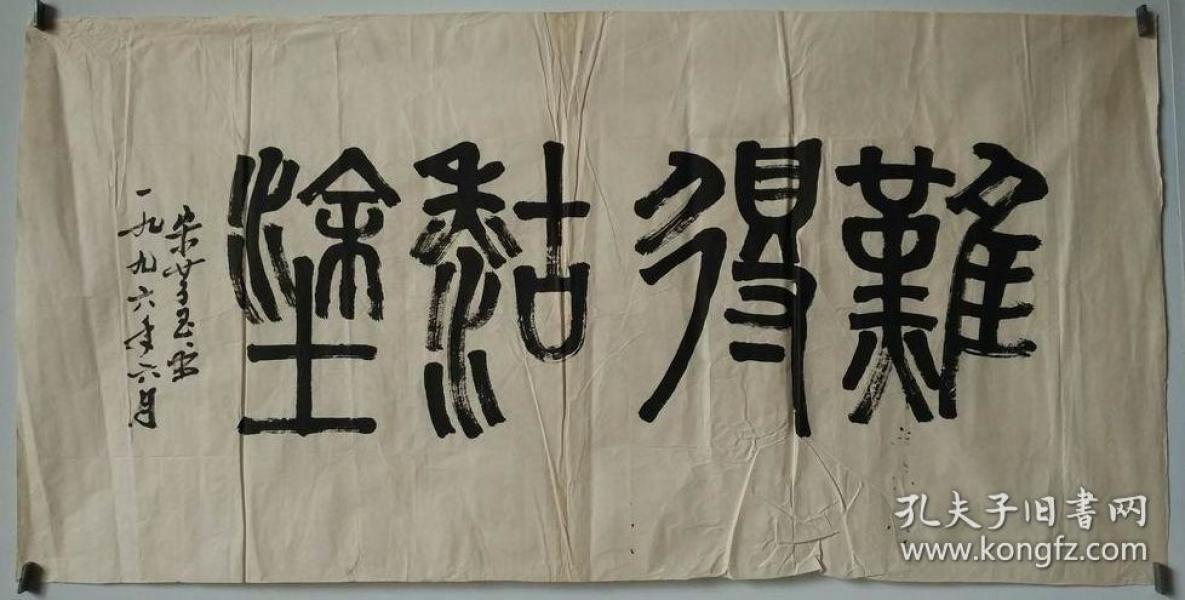 難得𪏻塗
一九九六年六月
孔夫子旧書网
www.kongfz.com